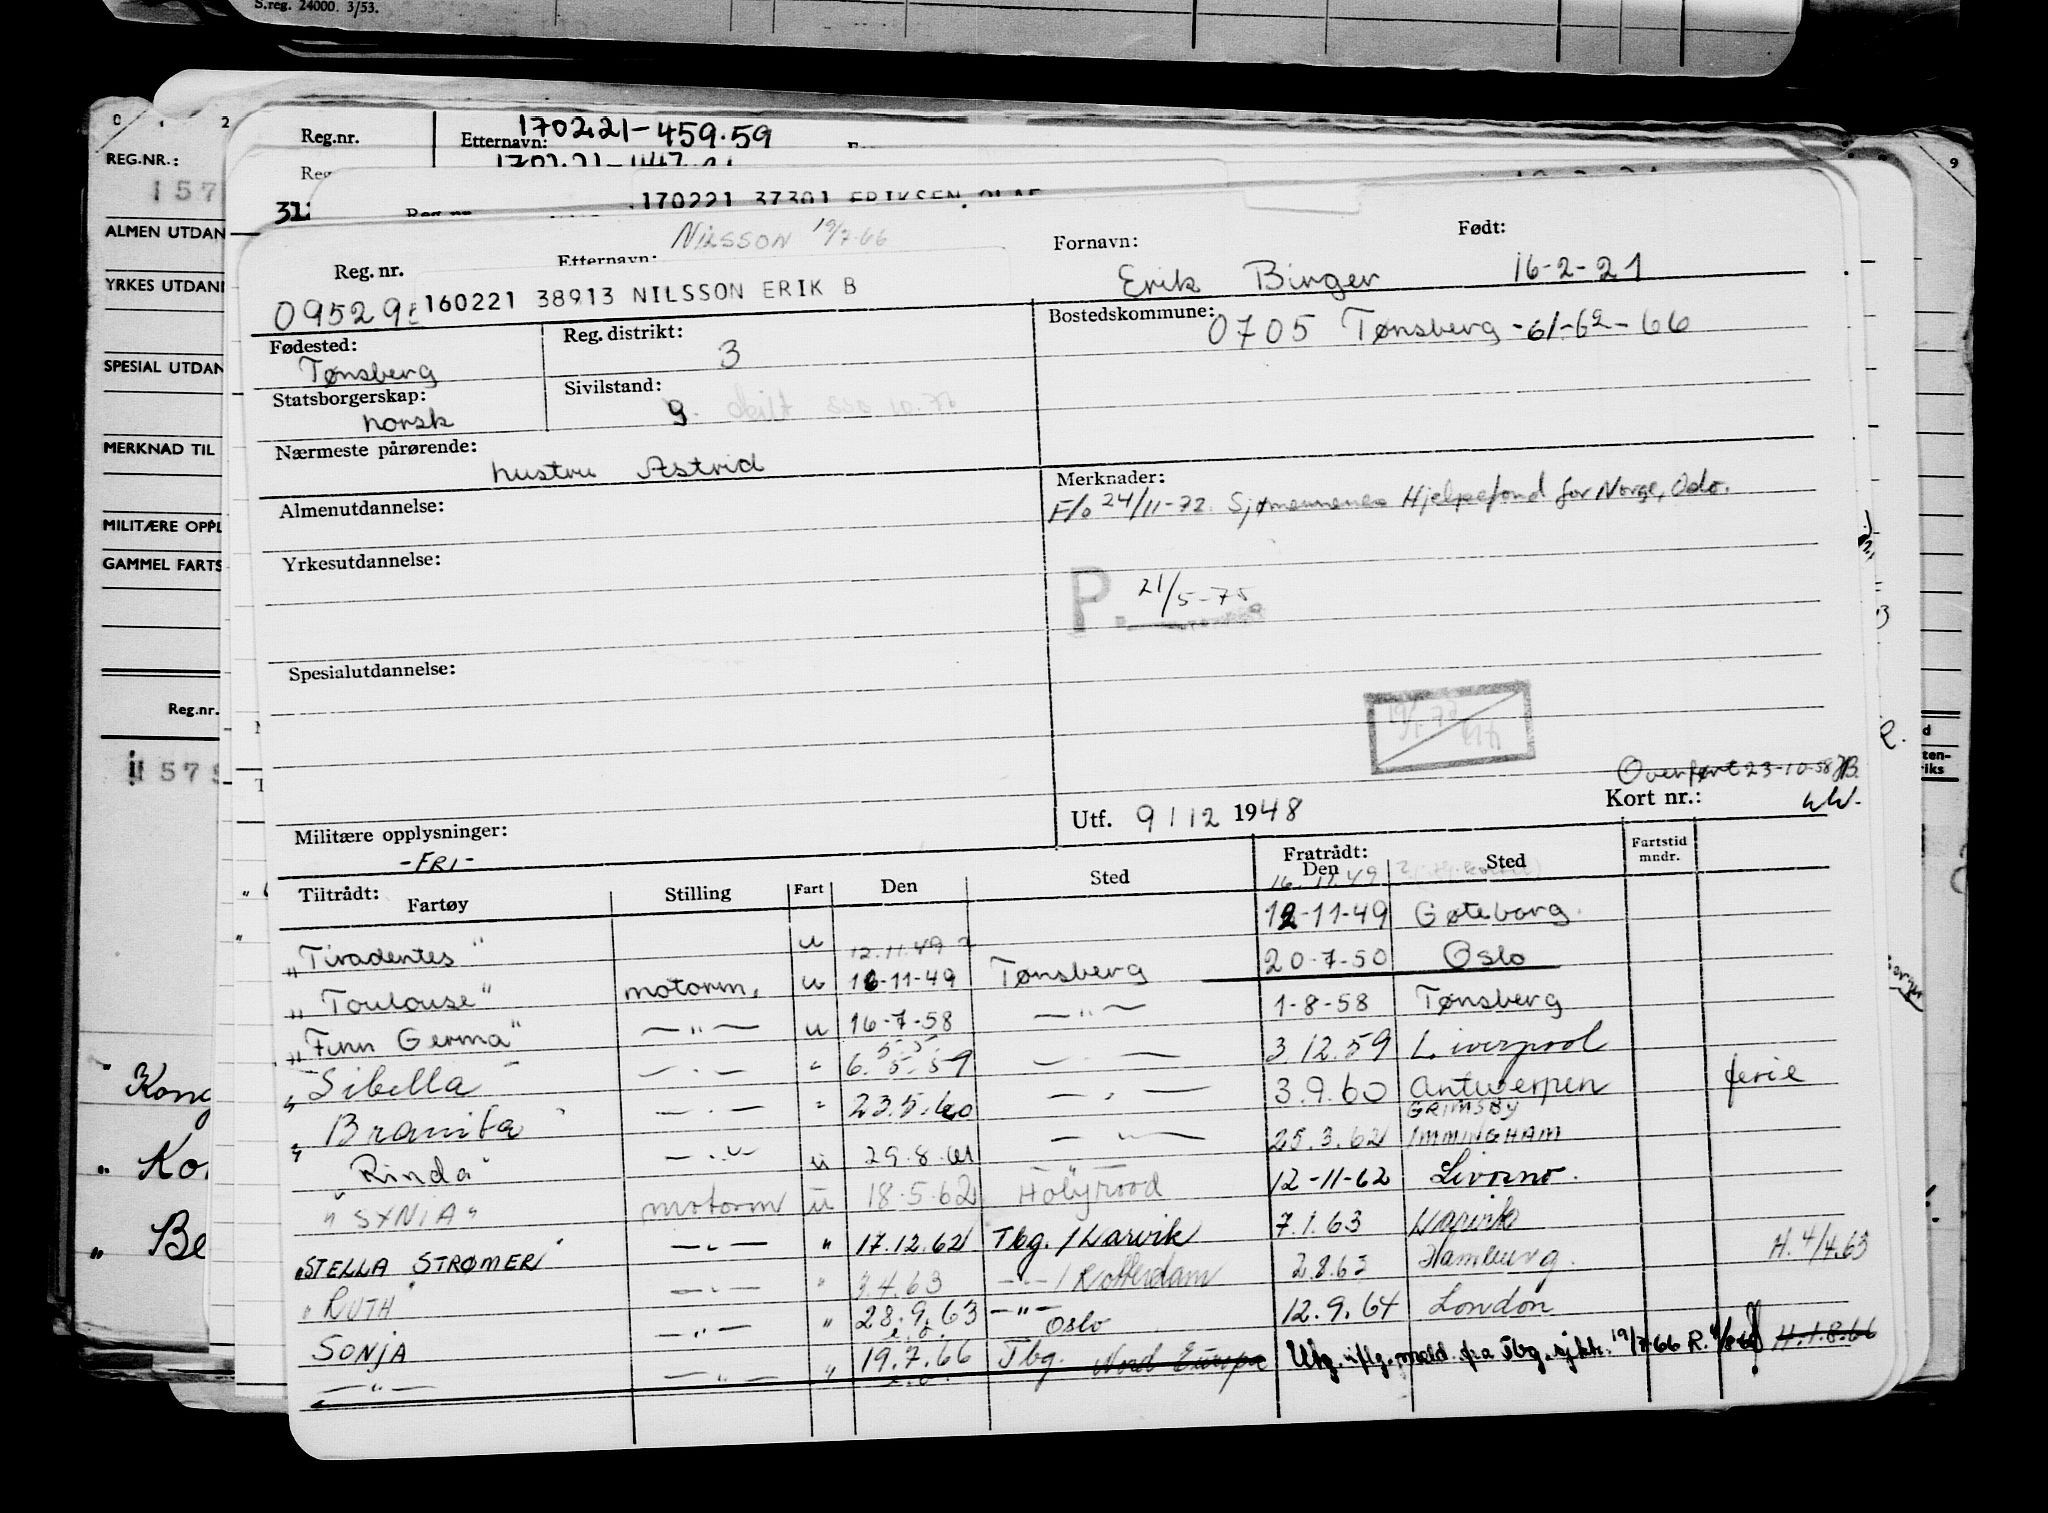 S.reg. 24000. 3/53.
REG.NR.:
157
ALMEN UTDAN
YRKES UTDAN
SPESIAL UTDAN
MERKNAD TIL
MILITÆRE OPPL
GAMMEL FARTS
Reg.nr.
Reg.nr. Etternavn: 170221-459.59
170221 37301 ERIKSEN OLAF
Nilsson 19/7-66
Reg. nr. Etternavn: Fornavn: Født:
09529 160221 38913 NILSSON ERIK B Erik Birger 16-2-21
Fødested: Reg. distrikt: Bostedskommune:
Tønsberg 3 0705 Tønsberg -61-62-66
Statsborgerskap: Sivilstand:
norsk g. skilt
Nærmeste pårørende:
hustru Astrid
Almenutdannelse:
Merknader:
F/o 24/11-72. Sjømennenes Hjelpefond for Norge, Oslo.
Yrkesutdannelse:
P. 21/5-75
Spesialutdannelse:
Overført 23-10-58
Utf. 9/12 1948 Kort nr.:
Militære opplysninger:
-FRI-
Tiltrådt: Fratrådt:
Fartøy Stilling Fart Den Sted Den Sted Fartstid mndr.
16.11.49
"Tiradentes" u 12-11-49 Gøteborg.
12.11.49
"Toulouse" motorm. u 16-11-49 Tønsberg 20-7-50 Oslo
"Finn Germa" —"— u 16-7-58 —"— 1-8-58 Tønsberg
"Sibella" —"— " 6.5.59 —"— 3.12.59 Liverpool
"Branita" —"— " 23.5.60 —"— 3.9.60 Antwerpen ferie
GRIMSBY
"Rinda" —"— u 29.8.61 —"— 25.3.62 IMMINGHAM
"SYNIA" motorm u 18.5.62 Holyrood 12-11-62 Livorno.
"STELLA STRØMER" —"— " 17.12.62 Tbg. / Larvik 7.1.63 Larvik
"RUTH" —"— " 3.4.63 —"— / Rotterdam 2.8.63 Hamburg. H. 4/4.63
SONJA —"— " 28.9.63 —"— Oslo 12.9.64 London
—"— —"— " 19.7.66 Tbg. Nord Europa Utg. iflg. meld. fra Tbg. sjktr. 19/7-66 H.1.8.66